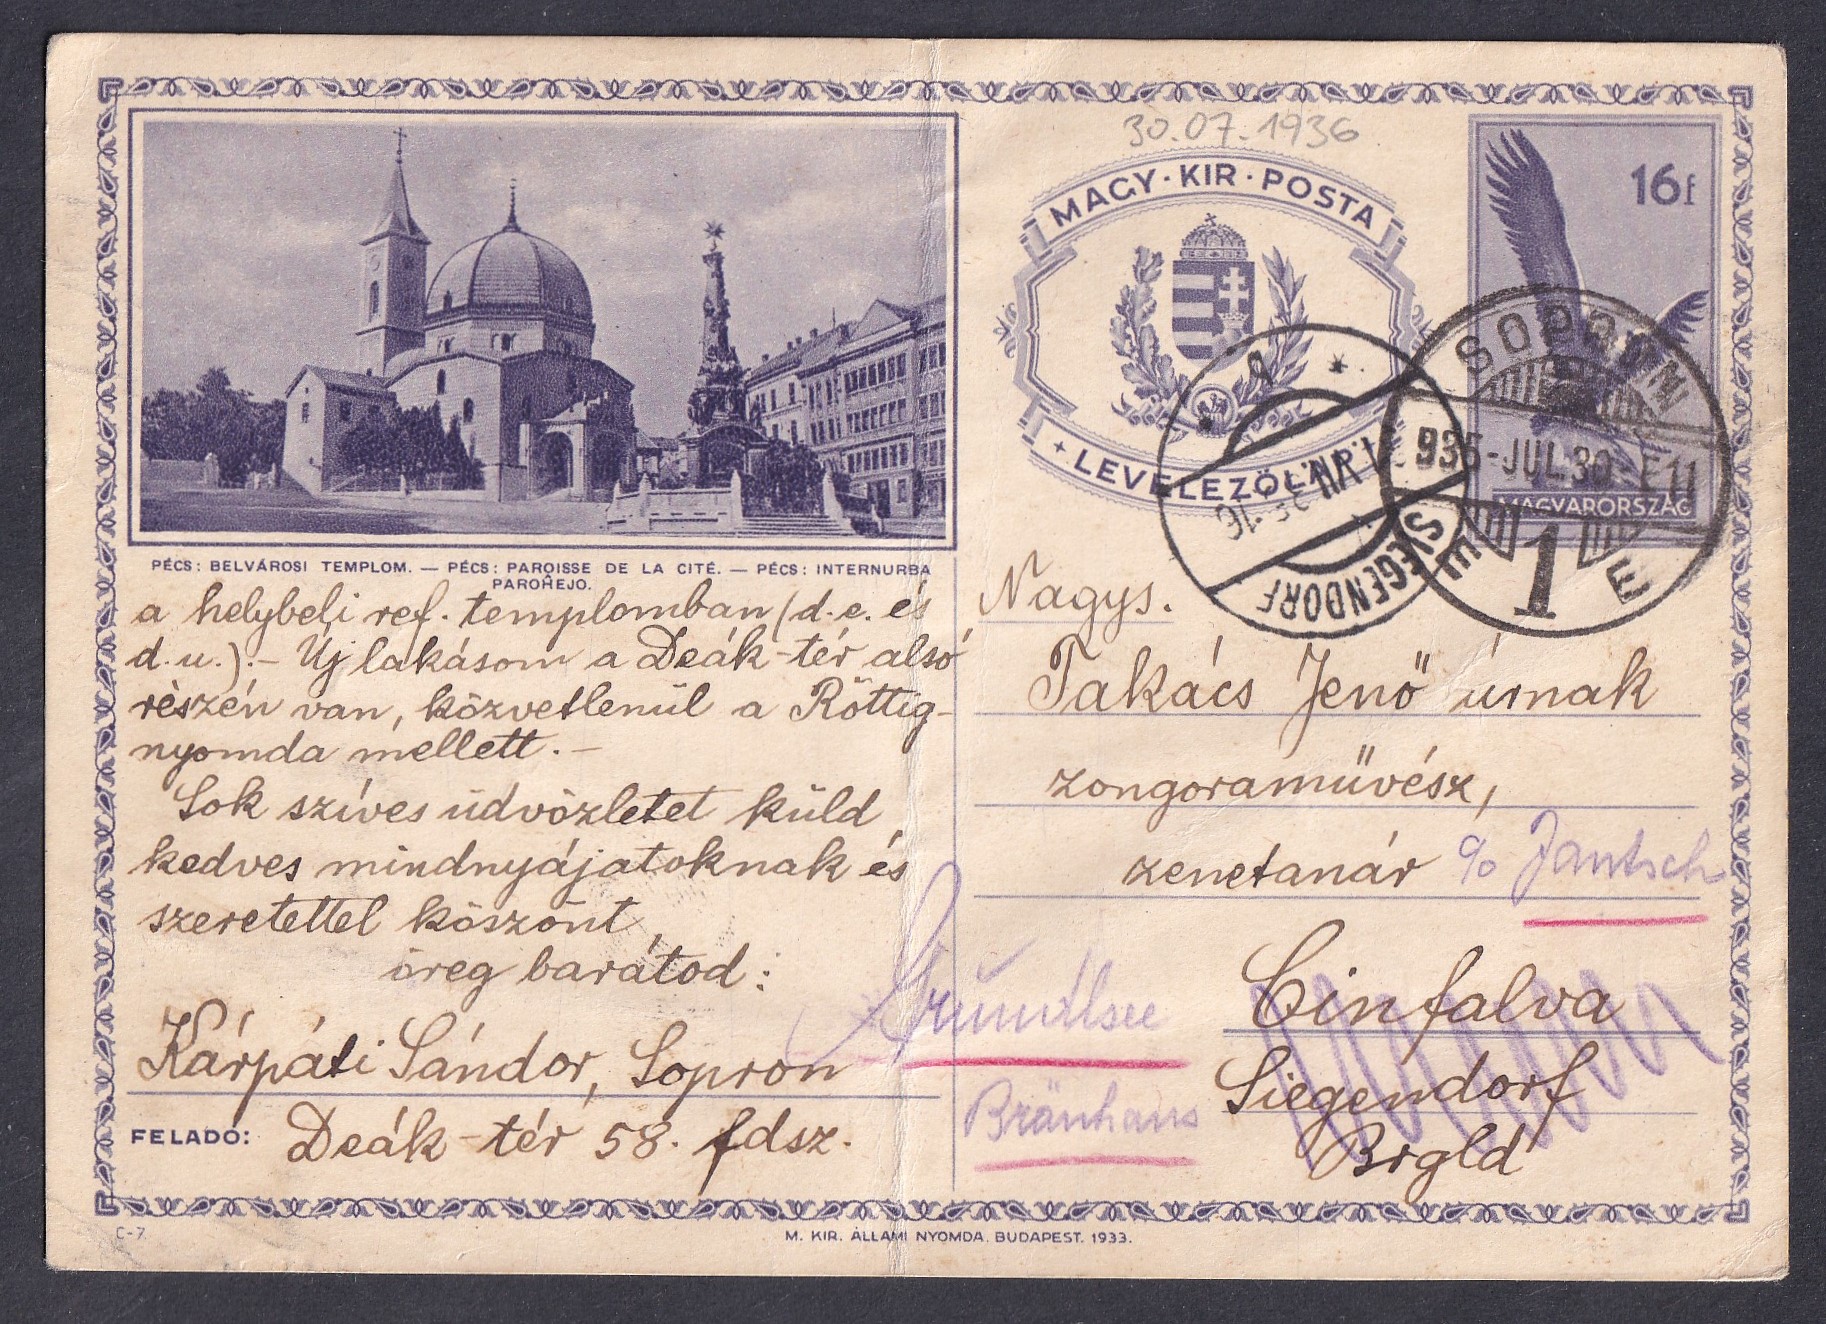 30.07.1936
MAGY·KIR·POSTA
LEVELEZŐLAP
16f
MAGYARORSZÁG
SOPRON
935-JUL.30. E11
1
E
SIEGENDORF
PÉCS: BELVÁROSI TEMPLOM. — PÉCS: PAROISSE DE LA CITÉ. — PÉCS: INTERNURBA
PAROĤEJO.
a helybeli ref. templomban (d. e. és
d. u.).– Új lakásom a Deák-tér alsó
részén van, közvetlenül a Röttig-
nyomda mellett. –
Sok szíves üdvözletet küld
kedves mindnyájatoknak és
szeretettel köszönt,
öreg barátod:
Kárpáti Sándor, Sopron
FELADÓ: Deák-tér 58. fdsz.
Nagys.
Takács Jenő úrnak
zongoraművész,
zenetanár c/o Jantsch
Cinfalva
Siegendorf
Brgld
Grundlsee
Bräuhaus
C-7
M. KIR. ÁLLAMI NYOMDA. BUDAPEST. 1933.